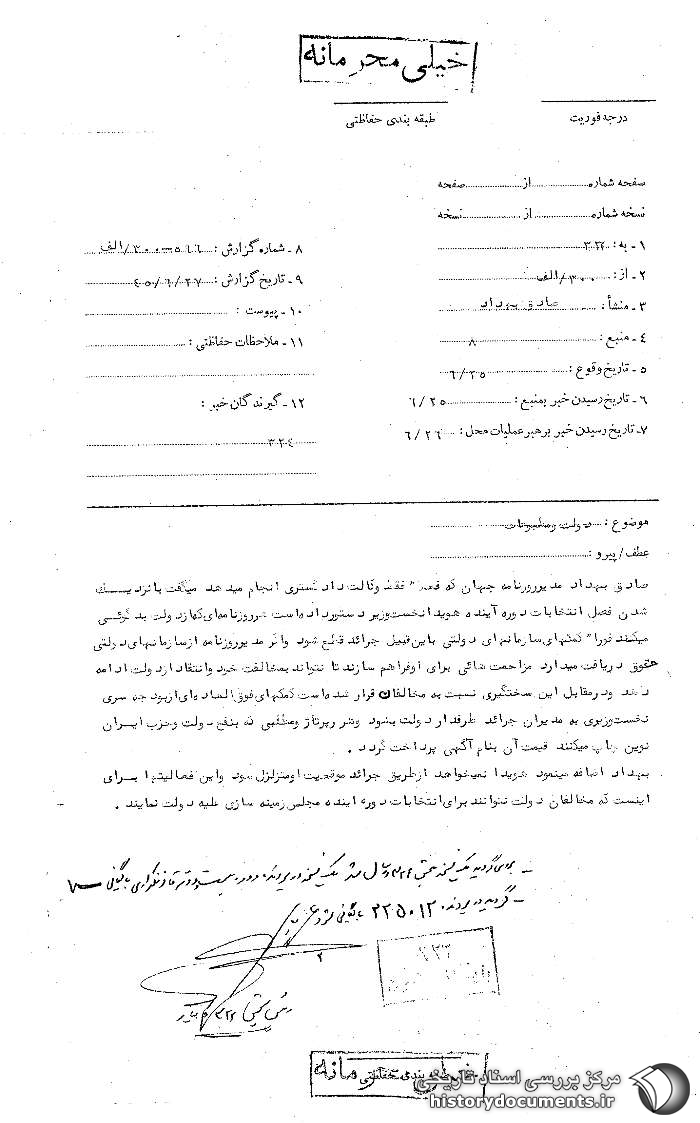 خیلی محرمانه
درجه فوریت
طبقه بندی حفاظتی
صفحه شماره از صفحه
نسخه شماره از نسخه
۱ - به: ۳۲۲
۲ - از: ۳۰۰/الف
۳ - منشأ: صادق بهداد
۴ - منبع: ۸
۵ - تاریخ وقوع: ۶/۲۵
۶ - تاریخ رسیدن خبر بمنبع: ۶/۲۵
۷ - تاریخ رسیدن خبر برهبر عملیات محل: ۶/۲۶
۸ - شماره گزارش: ۳۰۰-۵۶۶/الف
۹ - تاریخ گزارش: ۴۵/۶/۲۷
۱۰ - پیوست:
۱۱ - ملاحظات حفاظتی:
۱۲ - گیرندگان خبر:
۳۲۴
موضوع: دولت و مطبوعات
عطف/پیرو:
صادق بهداد مدیرروزنامه جهان که فعلا" فقط وکالت دادگستری انجام میدهد میگفت بانزدیک
شدن فصل انتخابات دوره آینده هویدا نخست وزیر دستورداده است هرروزنامه‌ای که ازدولت بدگوئی
میکند فورا" کمکهای سازمانهای دولتی باین قبیل جرائد قطع شود واگر مدیرروزنامه ازسازمانهای دولتی
حقوق دریافت میدارد مزاحمت هائی برای اوفراهم سازند تا نتواند بمخالفت خود وانتقاد ازدولت ادامه
دهد ودرمقابل این سختگیری نسبت به مخالفان قرار شده است کمکهای فوق العاده‌ای ازبودجه سری
نخست وزیری به مدیران جرائد طرفدار دولت بشود وهر رپرتاژ ومطلبی که بنفع دولت وحزب ایران
نوین چاپ میکنند قیمت آن بنام آگهی پرداخت گردد .
بهداد اضافه مینمود هویدا نمیخواهد ازطریق جرائد موقعیت اومتزلزل شود واین فعالیتها برای
اینست که مخالفان دولت نتوانند برای انتخابات دوره آینده مجلس زمینه سازی علیه دولت نمایند .
گردید در پرونده ۲۲۵۰۱۲ بایگانی شود
طبقه بندی حفاظتی
مرکز بررسی اسناد تاریخی
historydocuments.ir